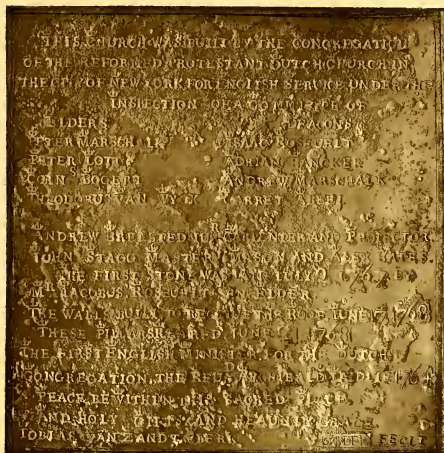 THIS CHURCH WAS BUILT BY THE CONGREGATION
OF THE REFORMED PROTESTANT DUTCH CHURCH IN
THE CITY OF NEW YORK FOR ENGLISH SERVICE UNDER THE
INSPECTION OF A COMMITTE OF
ELDERS DEACONS
PETER MARSCHALK ISAAC ROSEVELT
PETER LOTT ADRIAN BANCKER
CORNS BOGERT ANDREW MARSCHALK
THEODORUS VAN WYCK GARRET
ANDREW BREESTED JUNR CARPENTER AND PROJECTOR
JOHN STAGG MASTER MASON AND ALEX BATES
THE FIRST STONE WAS LAID JULY 2 1767 BY
MR JACOBUS ROSEVELT ELDER
THE WALLS BUILT TO RECEIVE THE ROOF JUNE 17 1768
THESE PILLARS REARED JUNE 21 1768
THE FIRST ENGLISH MINISTER FOR THE DUTCH
CONGREGATION, THE REVD ARCHIBALD LAIDLIE 1764
PEACE BE WITHIN THIS SACRED PLACE
AND HOLY GIFTS AND HEAVENLY GRACE
TOBIAS VAN ZANDT CLERK FECIT